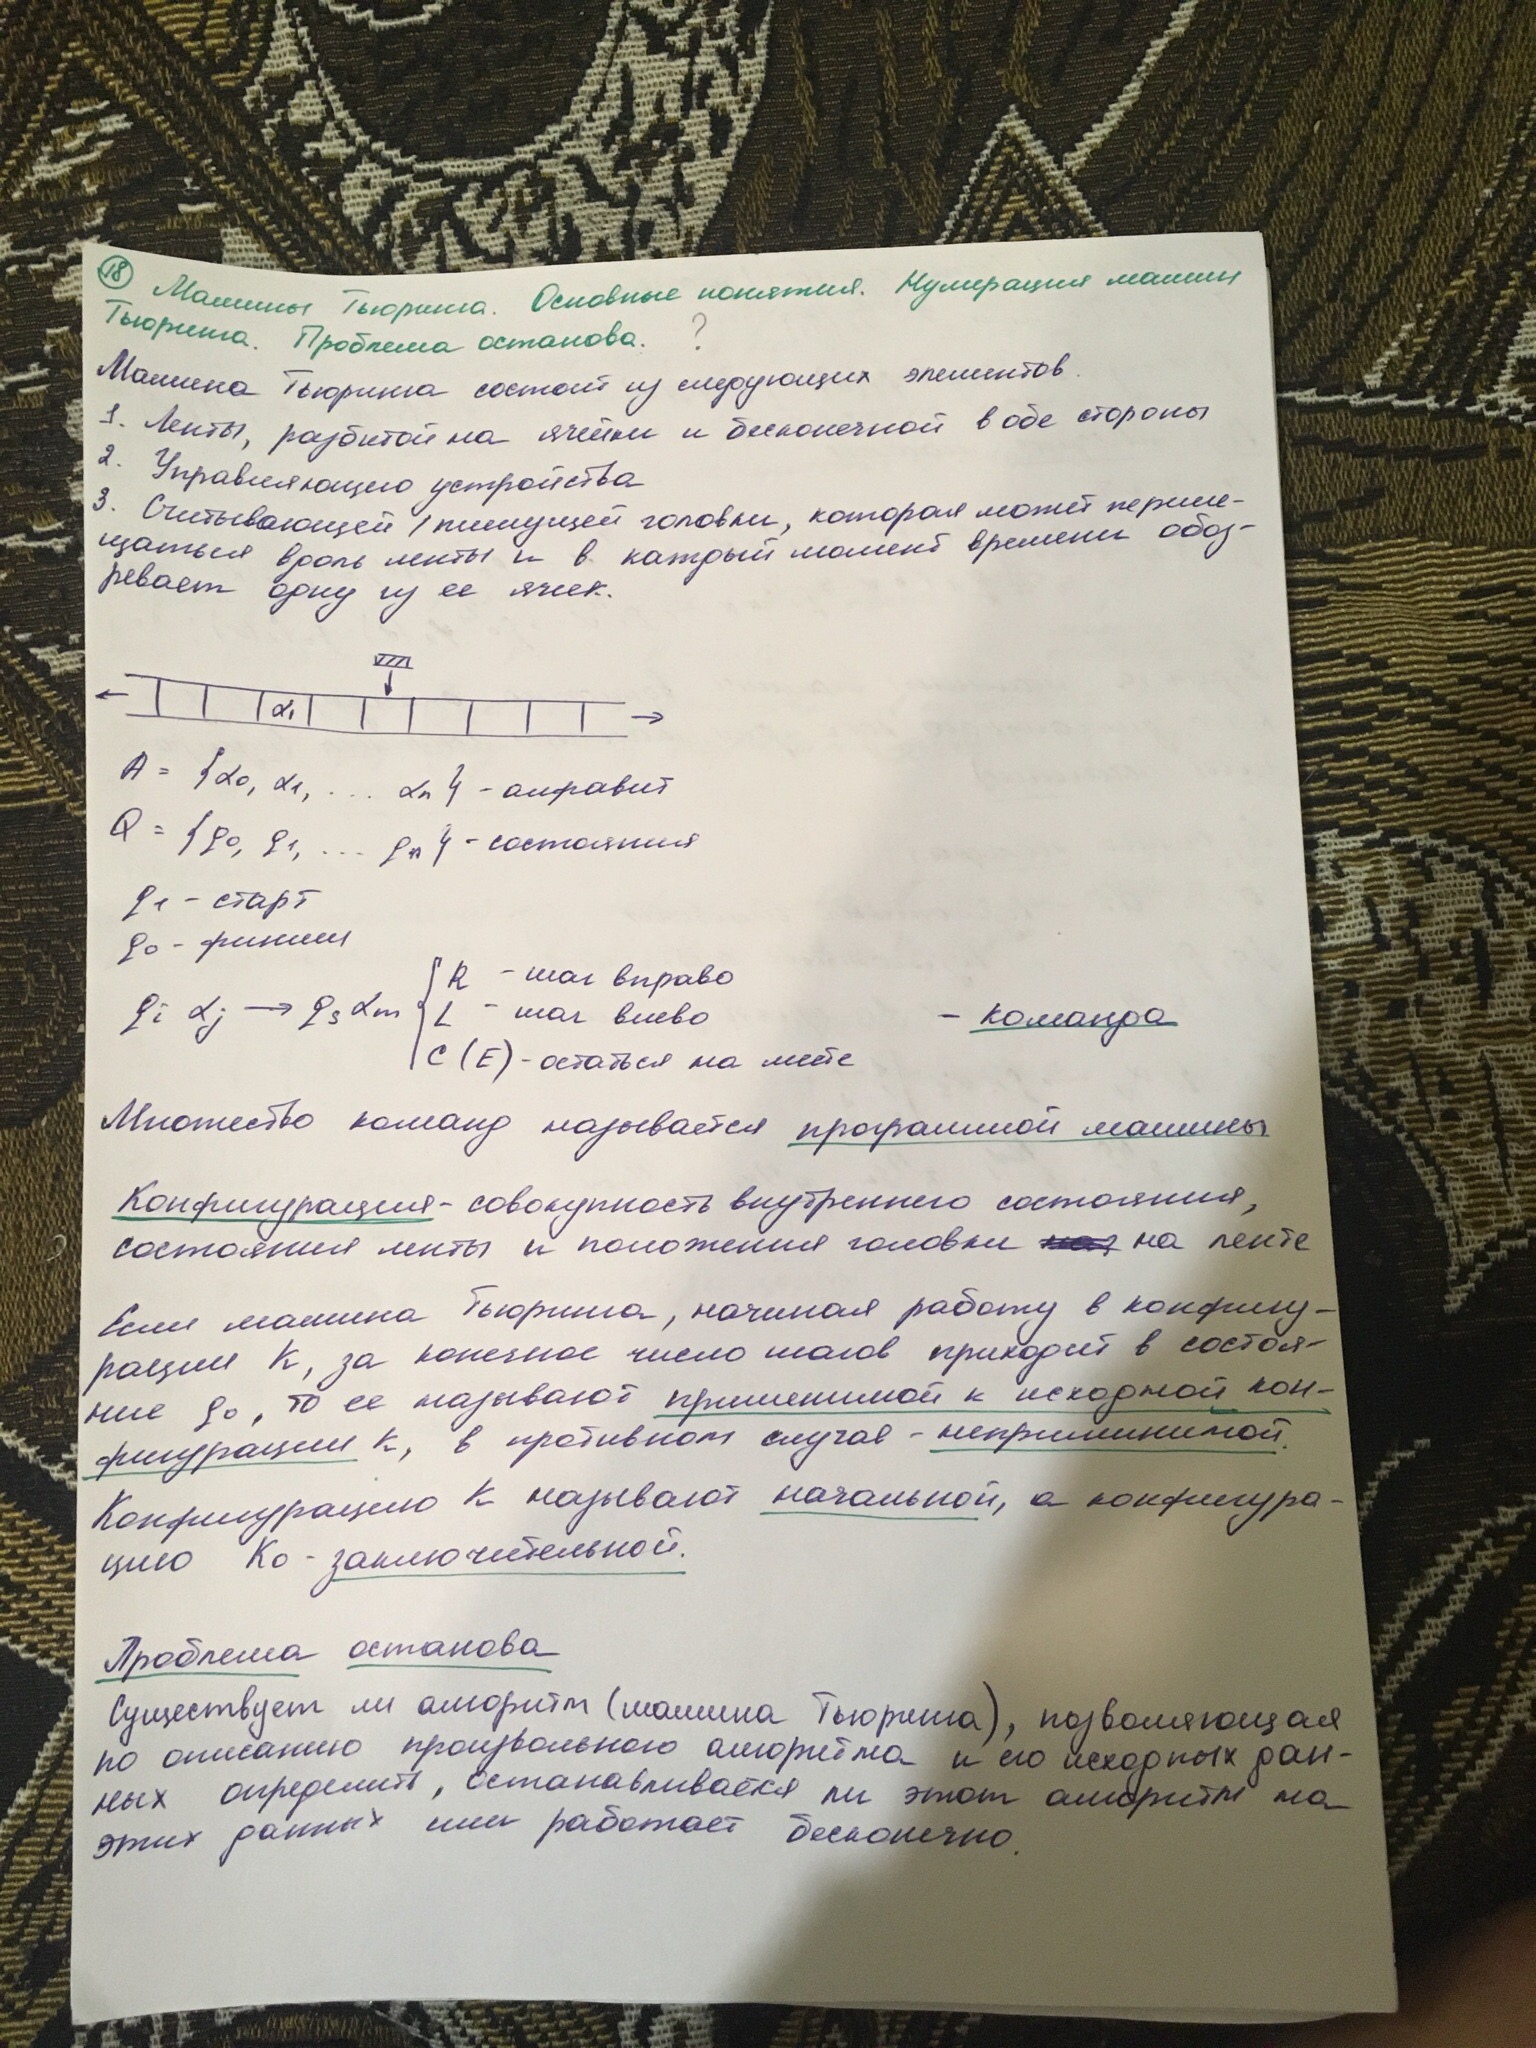 18 Машины Тьюринга. Основные понятия. Нумерация машин
Тьюринга. Проблема останова. ?
Машина Тьюринга состоит из следующих элементов.
1. Ленты, разбитой на ячейки и бесконечной в обе стороны
2. Управляющего устройства
3. Считывающей/пишущей головки, которая может переме-
щаться вдоль ленты и в каждый момент времени обоз-
ревает одну из ее ячеек.
α₁
A = {α₀, α₁, ... αₙ} - алфавит
Q = {q₀, q₁, ... qₙ} - состояния
q₁ - старт
q₀ - финиш
R - шаг вправо
qᵢ αⱼ → qₛ αₘ { L - шаг влево - команда
C (E) - остаться на месте
Множество команд называется программой машины
Конфигурация - совокупность внутреннего состояния,
состояния ленты и положения головки на ленте
Если машина Тьюринга, начиная работу в конфигу-
рации K, за конечное число шагов приходит в состоя-
ние q₀, то ее называют применимой к исходной кон-
фигурации K, в противном случае - неприминимой.
Конфигурацию K называют начальной, а конфигура-
цию K₀ - заключительной.
Проблема останова
Существует ли алгоритм (машина Тьюринга), позволяющая
по описанию произвольного алгоритма и его исходных дан-
ных определить, останавливается ли этот алгоритм на
этих данных или работает бесконечно.